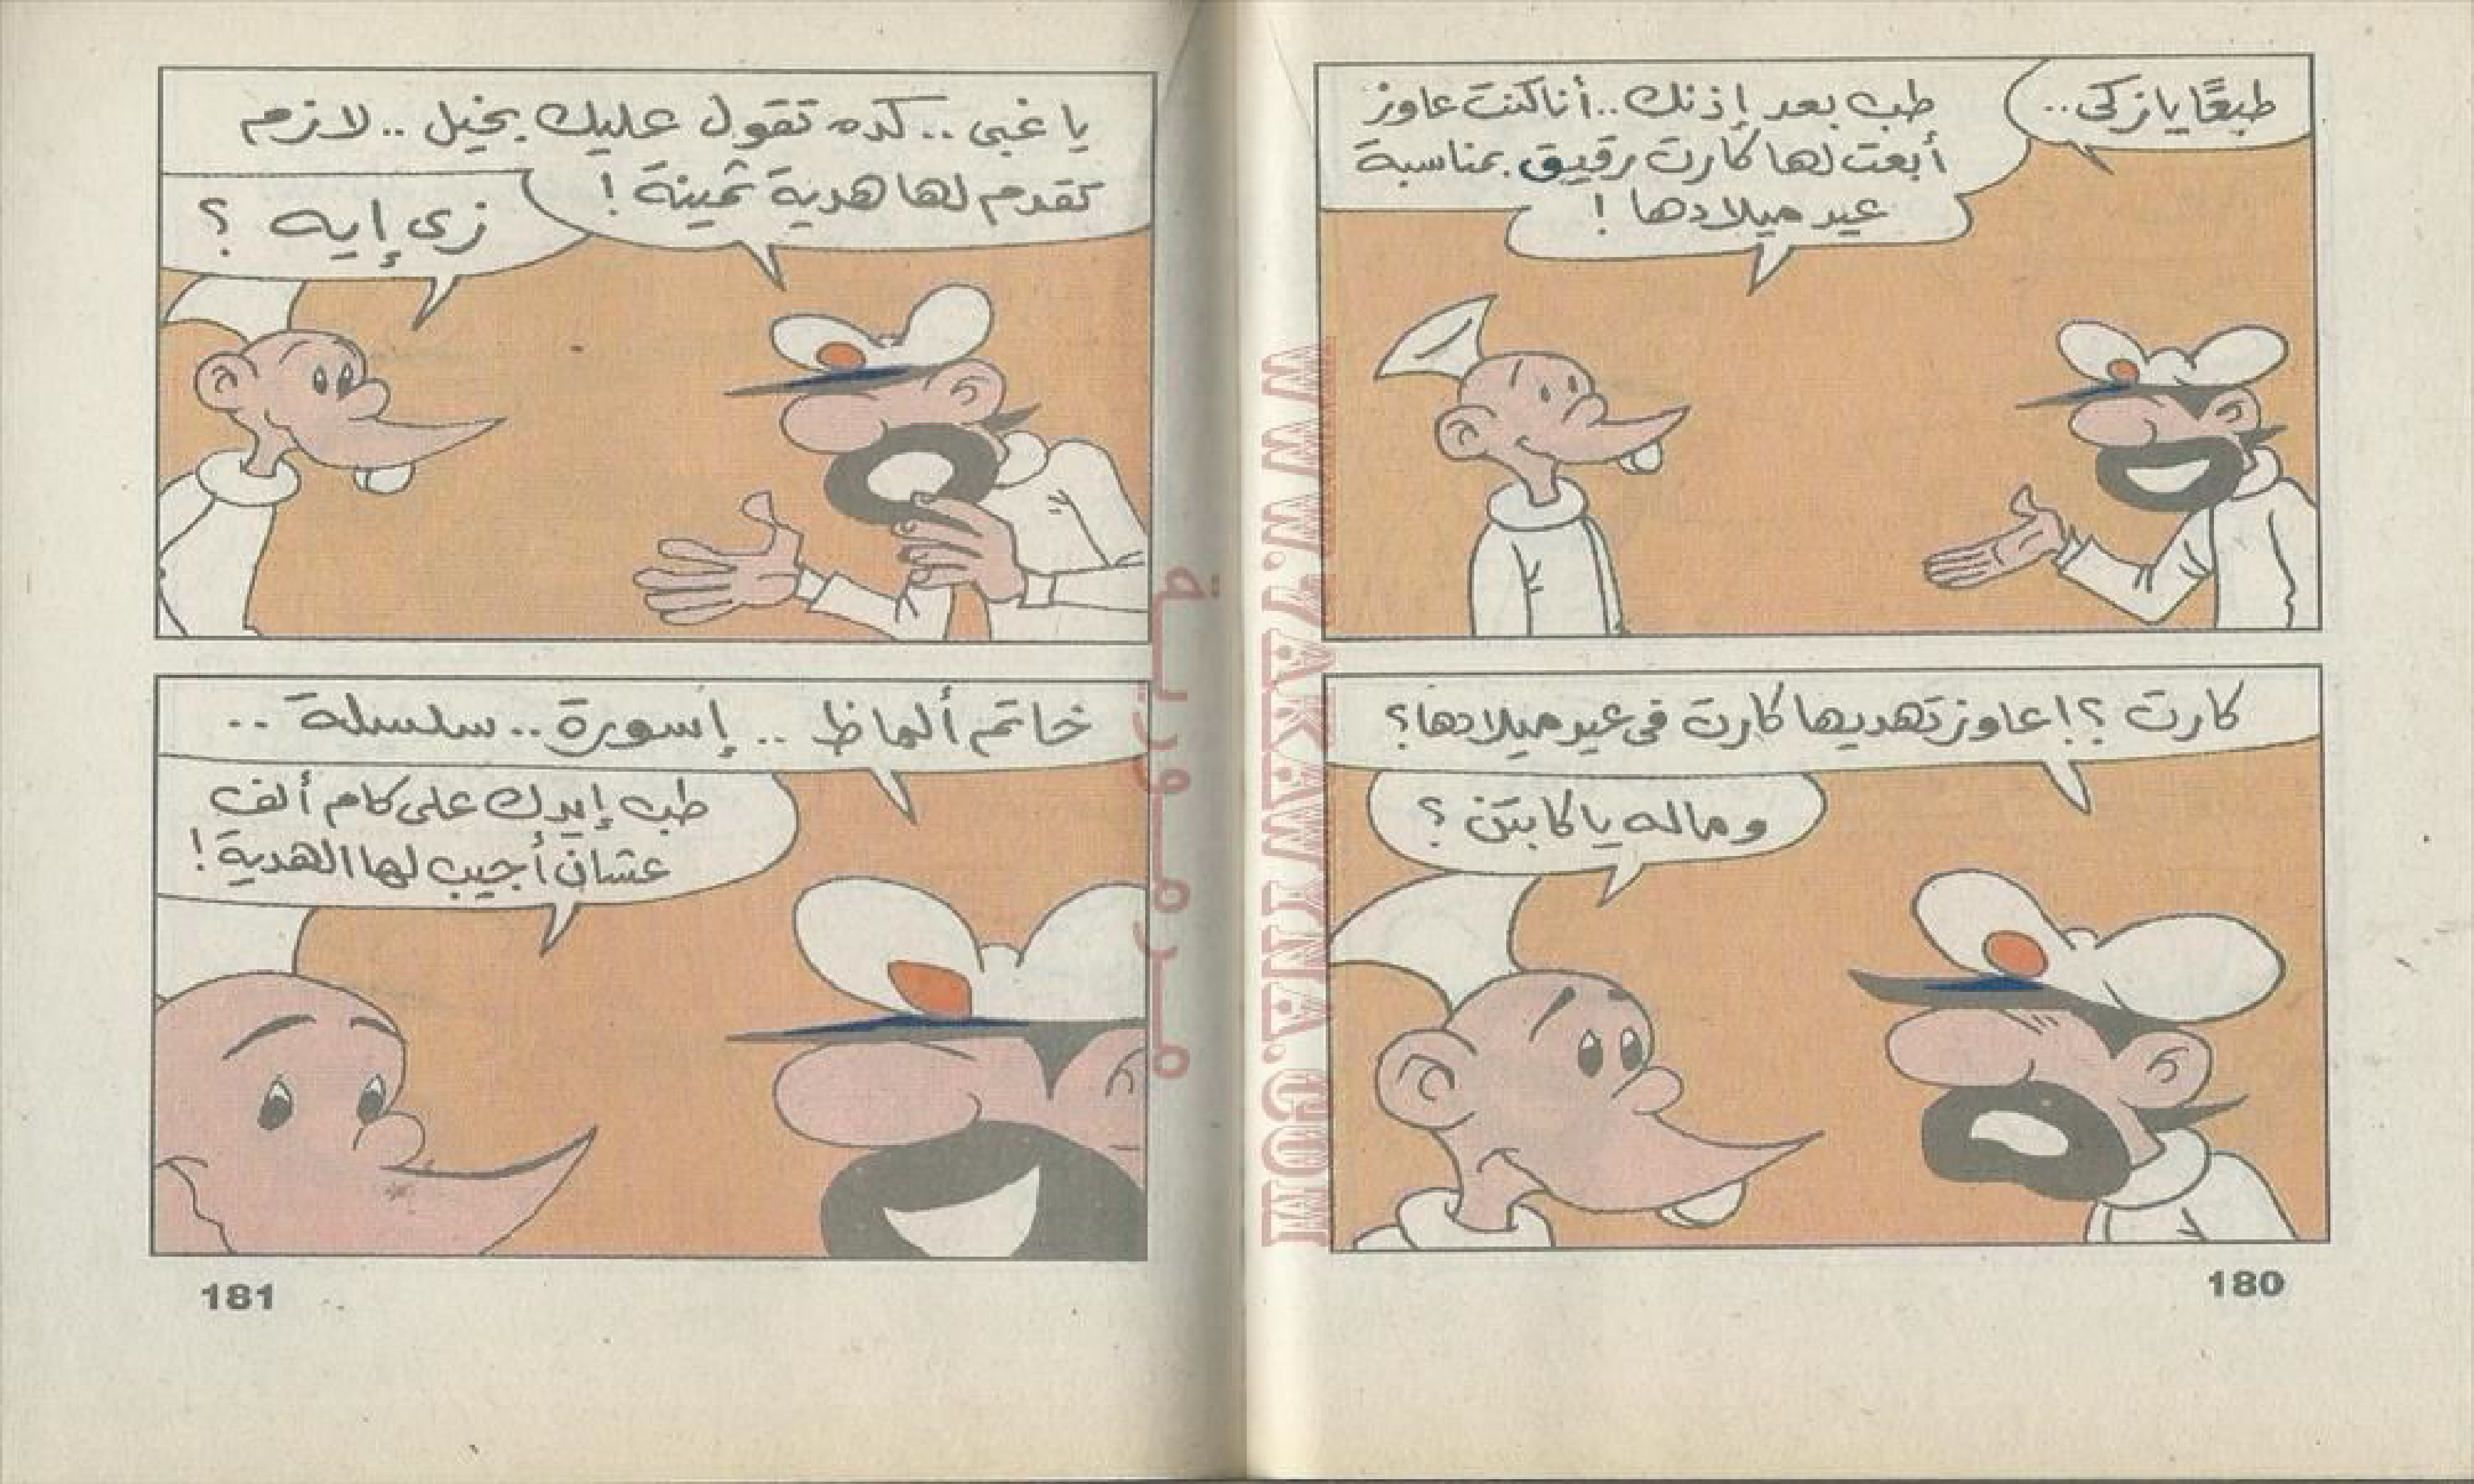 طبعًا يا زكى..
طب بعد إذنك.. أنا كنت عاوز
أبعت لها كارت رقيق بمناسبة
عيد ميلادها !
كارت ؟! عاوز تهديها كارت فى عيد ميلادها؟
وماله يا كابتن ؟
180
يا غبى .. كده تقول عليك بخيل .. لازم
تقدم لها هدية ثمينة !
زى إيه ؟
خاتم ألماظ .. إسورة .. سلسلة ..
طب إيدك على كام ألف
عشان أجيب لها الهدية !
181